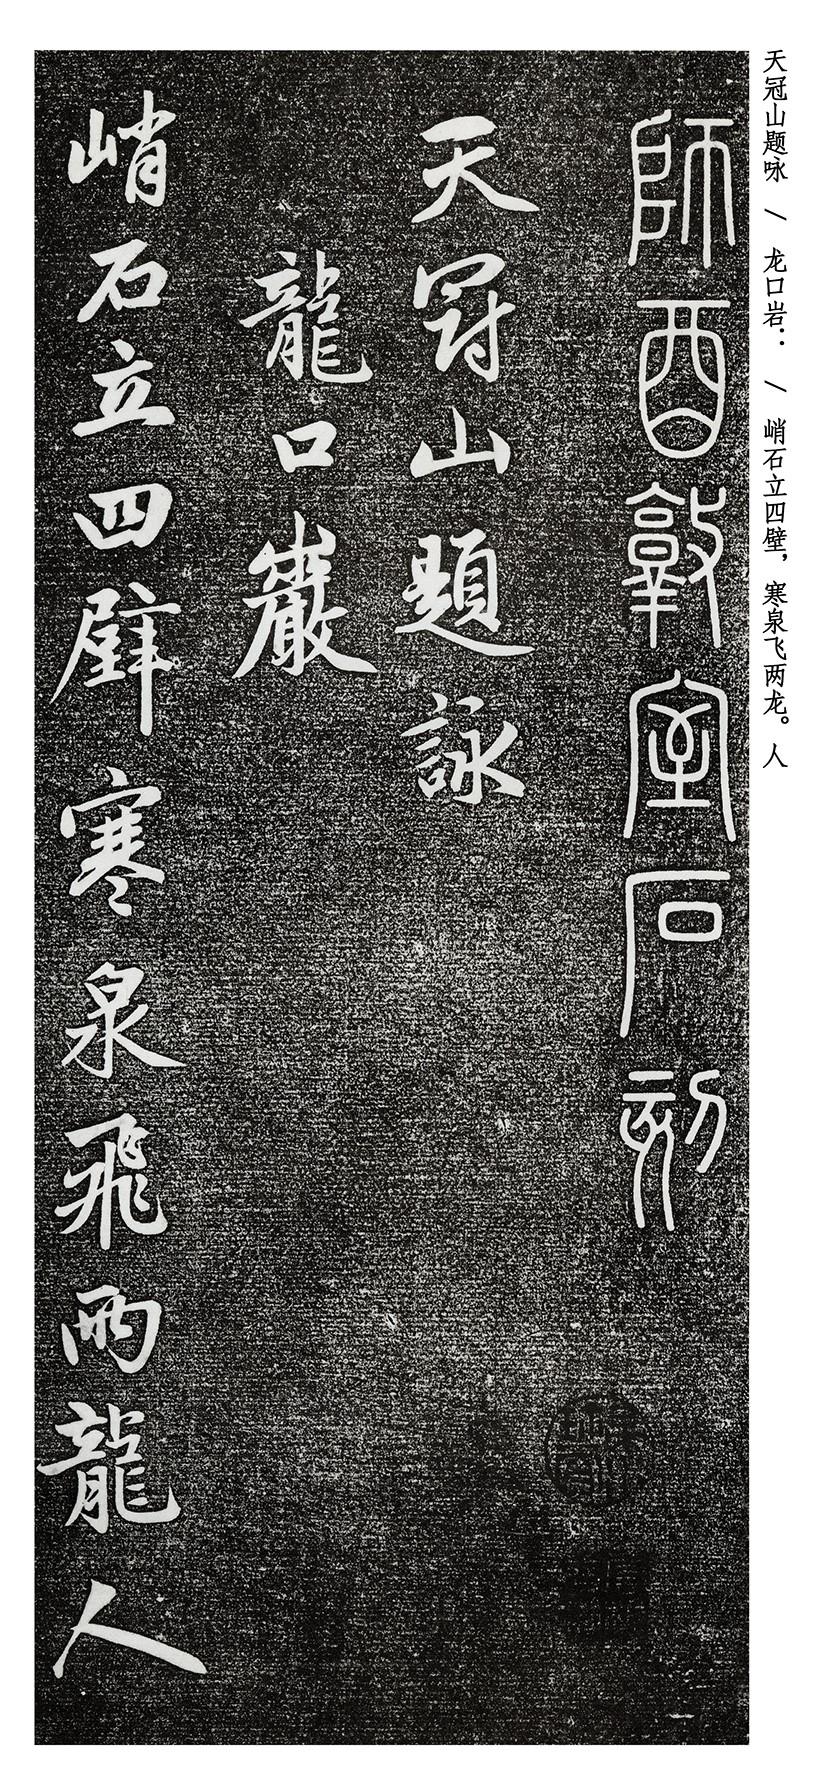 天冠山题咏 / 龙口岩： / 峭石立四壁，寒泉飞两龙。人
師酉敦室石刻
天冠山題詠
龍口巖
峭石立四壁寒泉飛兩龍人